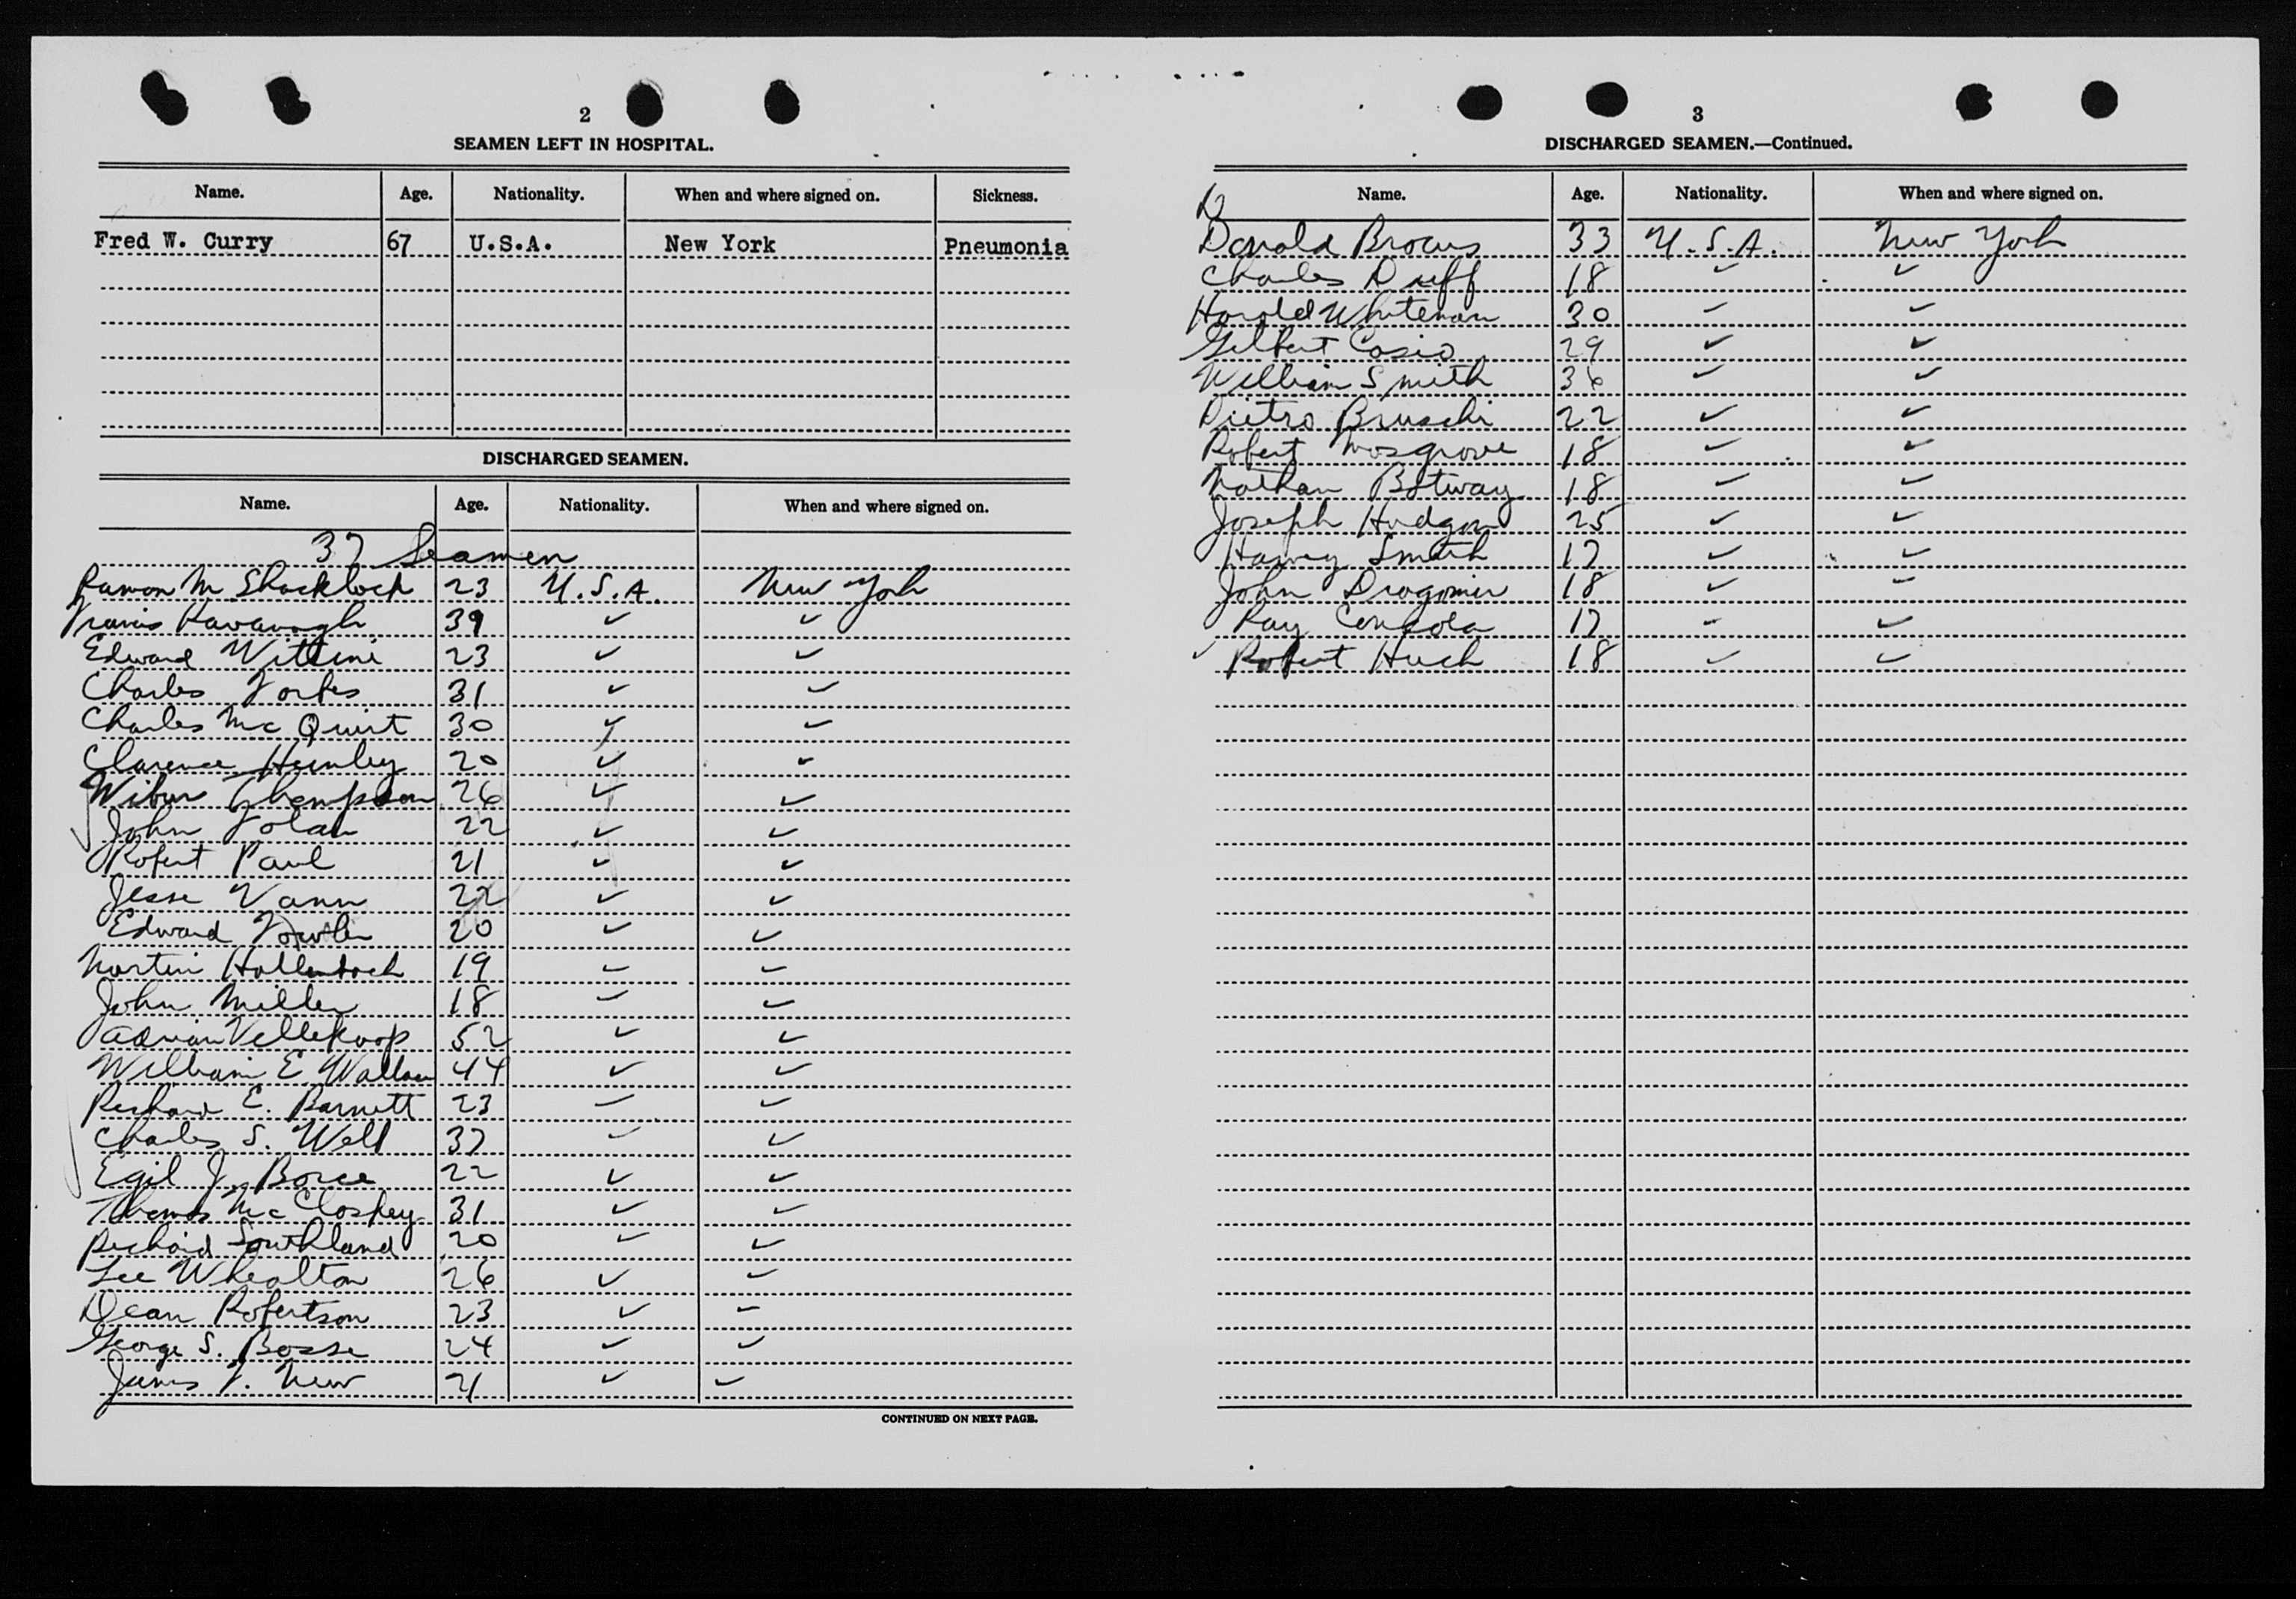 2
SEAMEN LEFT IN HOSPITAL.
Name. Age. Nationality. When and where signed on. Sickness.
Fred W. Curry 67 U.S.A. New York Pneumonia
DISCHARGED SEAMEN.
Name. Age. Nationality. When and where signed on.
37 Seamen
Ramon M Shocklock 23 U.S.A. New York
Francis Kavanagh 39 ✓ ✓
Edward 23 ✓ ✓
Charles Forbes 31 ✓ ✓
Charles McQuirt 30 ✓ ✓
Clarence 20 ✓ ✓
Wibur Thompson 26 ✓ ✓
John 22 ✓ ✓
Robert Paul 21 ✓ ✓
Jesse Vann 22 ✓ ✓
Edward 20 ✓ ✓
Hollenbach 19 ✓ ✓
John Miller 18 ✓ ✓
Adrian Vellekoop 52 ✓ ✓
William E Wallace 44 ✓ ✓
Richard E. Barnett 23 ✓ ✓
Charles S. Well 37 ✓ ✓
Egil J. 22 ✓ ✓
Thomas McCloskey 31 ✓ ✓
Richard Southland 20 ✓ ✓
Lee Whealton 26 ✓ ✓
Dean Robertson 23 ✓ ✓
George S. Bosse 24 ✓ ✓
James F. New 21 ✓ ✓
CONTINUED ON NEXT PAGE.
3
DISCHARGED SEAMEN.—Continued.
Name. Age. Nationality. When and where signed on.
D
Donald 33 U.S.A. New York
Charles Duff 18 ✓ ✓
Harold Whiteman 30 ✓ ✓
Gilbert Cosio 29 ✓ ✓
William Smith 36 ✓ ✓
Pietro Bruschi 22 ✓ ✓
Robert Mosgrove 18 ✓ ✓
Nathan Botway 18 ✓ ✓
Joseph Hudgson 25 ✓ ✓
Harvey Smith 17 ✓ ✓
John Dragomir 18 ✓ ✓
Ray 17 ✓ ✓
✓ Robert Huch 18 ✓ ✓